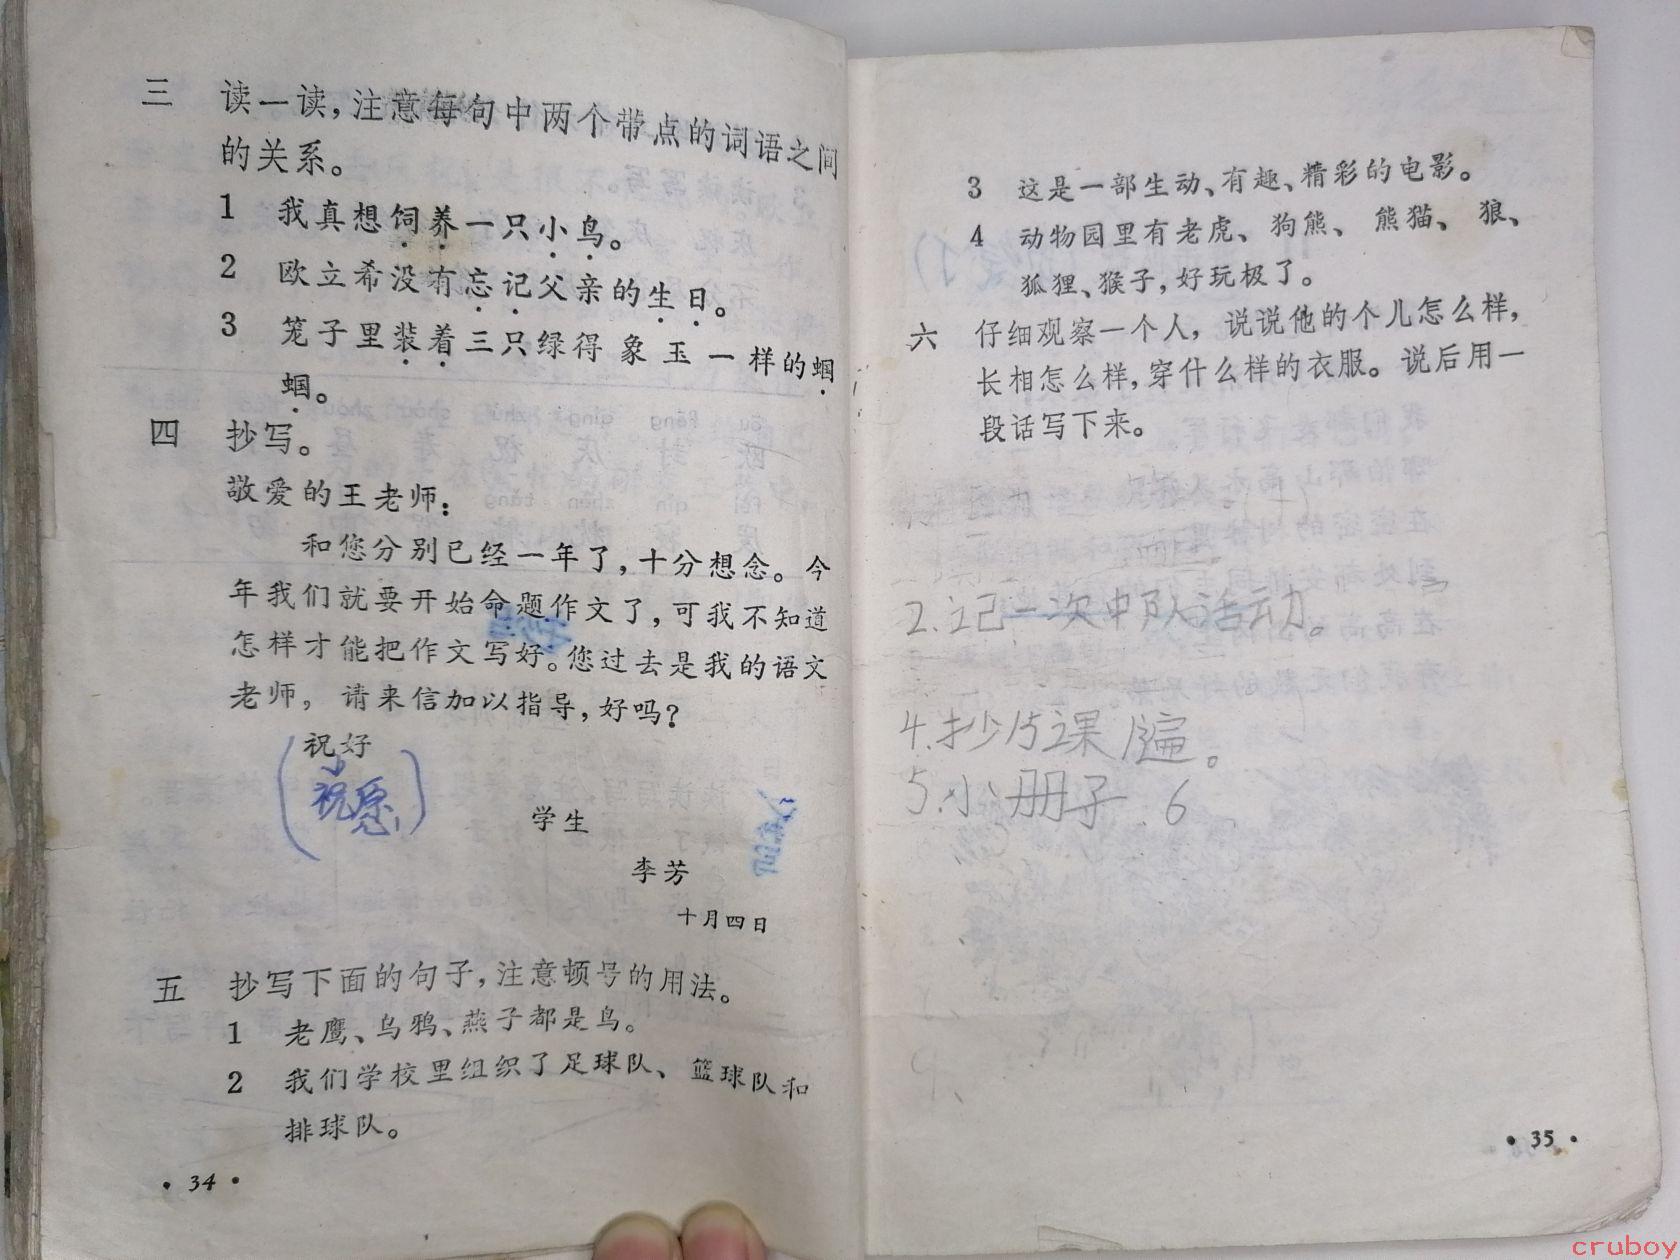 三 读一读，注意每句中两个带点的词语之间
的关系。
1 我真想饲养一只小鸟。
2 欧立希没有忘记父亲的生日。
3 笼子里装着三只绿得象玉一样的蝈
蝈。
四 抄写。
敬爱的王老师：
和您分别已经一年了，十分想念。今
年我们就要开始命题作文了，可我不知道
怎样才能把作文写好。您过去是我的语文
老师，请来信加以指导，好吗？
祝好
（祝愿）
学生
李芳
十月四日
五 抄写下面的句子，注意顿号的用法。
1 老鹰、乌鸦、燕子都是鸟。
2 我们学校里组织了足球队、篮球队和
排球队。
·34·
3 这是一部生动、有趣、精彩的电影。
4 动物园里有老虎、狗熊、熊猫、狼、
狐狸、猴子，好玩极了。
六 仔细观察一个人，说说他的个儿怎么样，
长相怎么样，穿什么样的衣服。说后用一
段话写下来。
2.记一次中队活动。
4.抄15课1遍。
5.小册子.6
·35·
cruboy